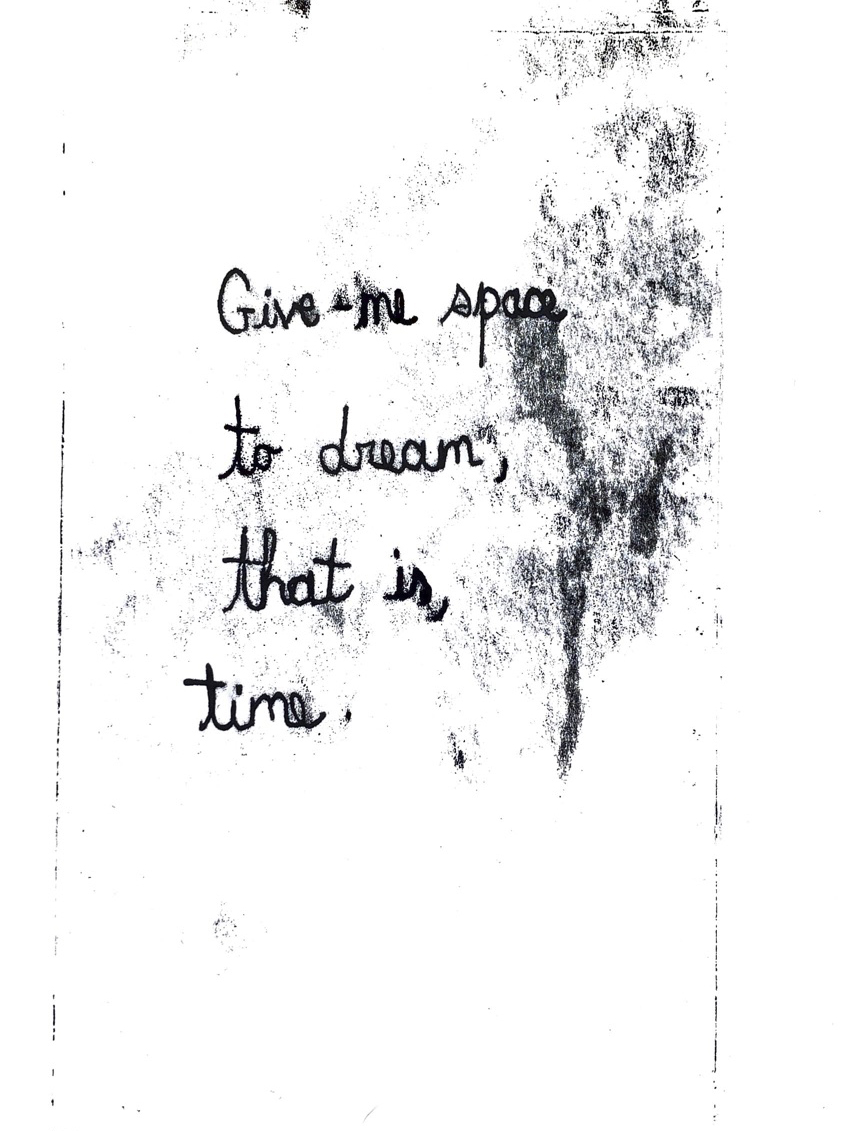 Give-me space
to dream,
that is,
time.